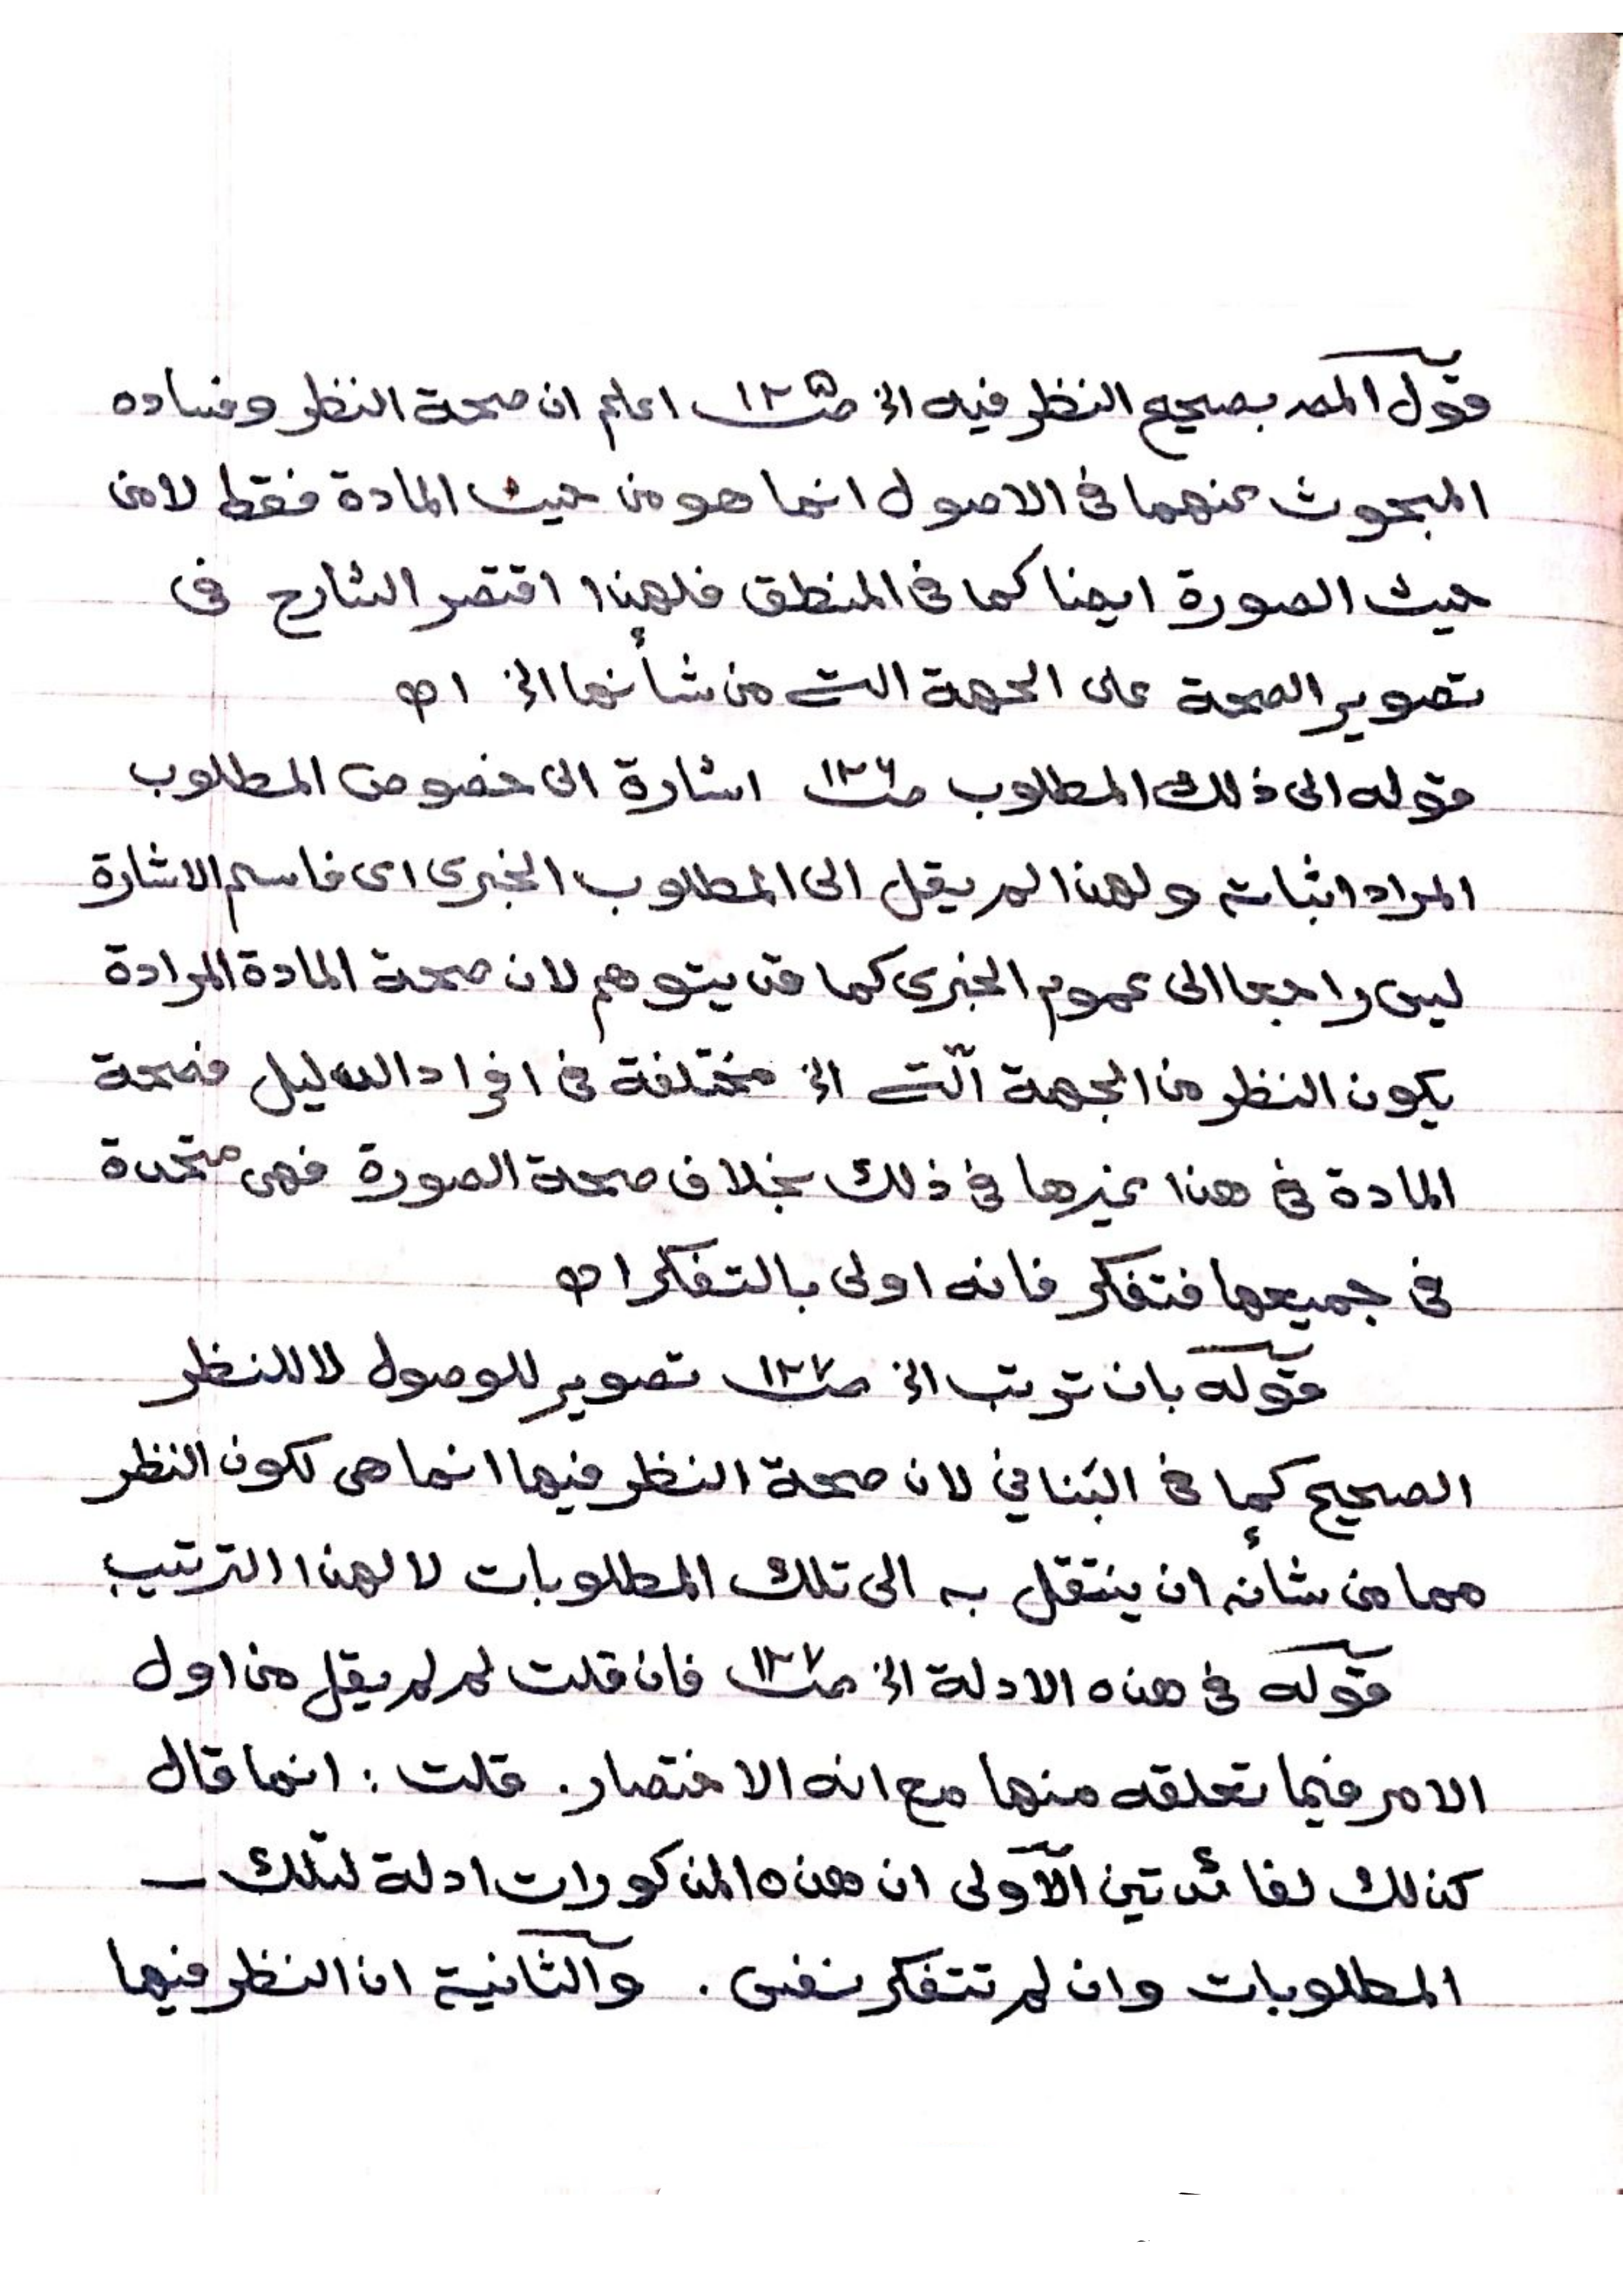 قول المصـ بصحيح النظر فيه الخ صـ١٢٥ اعلم ان صحة النظر وفساده
المبحوث عنهما في الاصول انما هو من حيث المادة فقط لا من
حيث الصورة ايضا كما في المنطق فلهذا اقتصر الشارح فى
تصوير الصحة على الجهة التى من شأنها الخ اھ
قوله الى ذلك المطلوب صـ١٢٦ اشارة الى خصوص المطلوب
المراد اثباته ولهذا لم يقل الى المطلوب الخبرى اى فاسم الاشارة
ليس راجعا الى عموم الخبرى كما قد يتوهم لان صحة المادة المرادة
بكون النظر من الجهة الّتى الخ مختلفة فى افراد الدليل فصحة
المادة في هذا غيرها في ذلك بخلاف صحة الصورة فهى متحدة
فى جميعها فتفكر فانه اولى بالتفكر اھ
قوله بان ترتب الخ صـ١٢٧ تصوير للوصول لا للنظر
الصحيح كما فى البَناني لان صحة النظر فيها انما هى لكون النظر
مما من شأنه ان ينتقل به الى تلك المطلوبات لا لهذا الترتيب
قوله في هذه الادلة الخ صـ١٢٧ فان قلت لم لم يقل من اول
الامر فيما تعلقه منها مع انه الاختصار. قلت: انما قال
كذلك لفائدتين الأولى ان هذه المذكورات ادلة لتلك
المطلوبات وان لم تتفكر نفس. والثانية ان النظر فيها